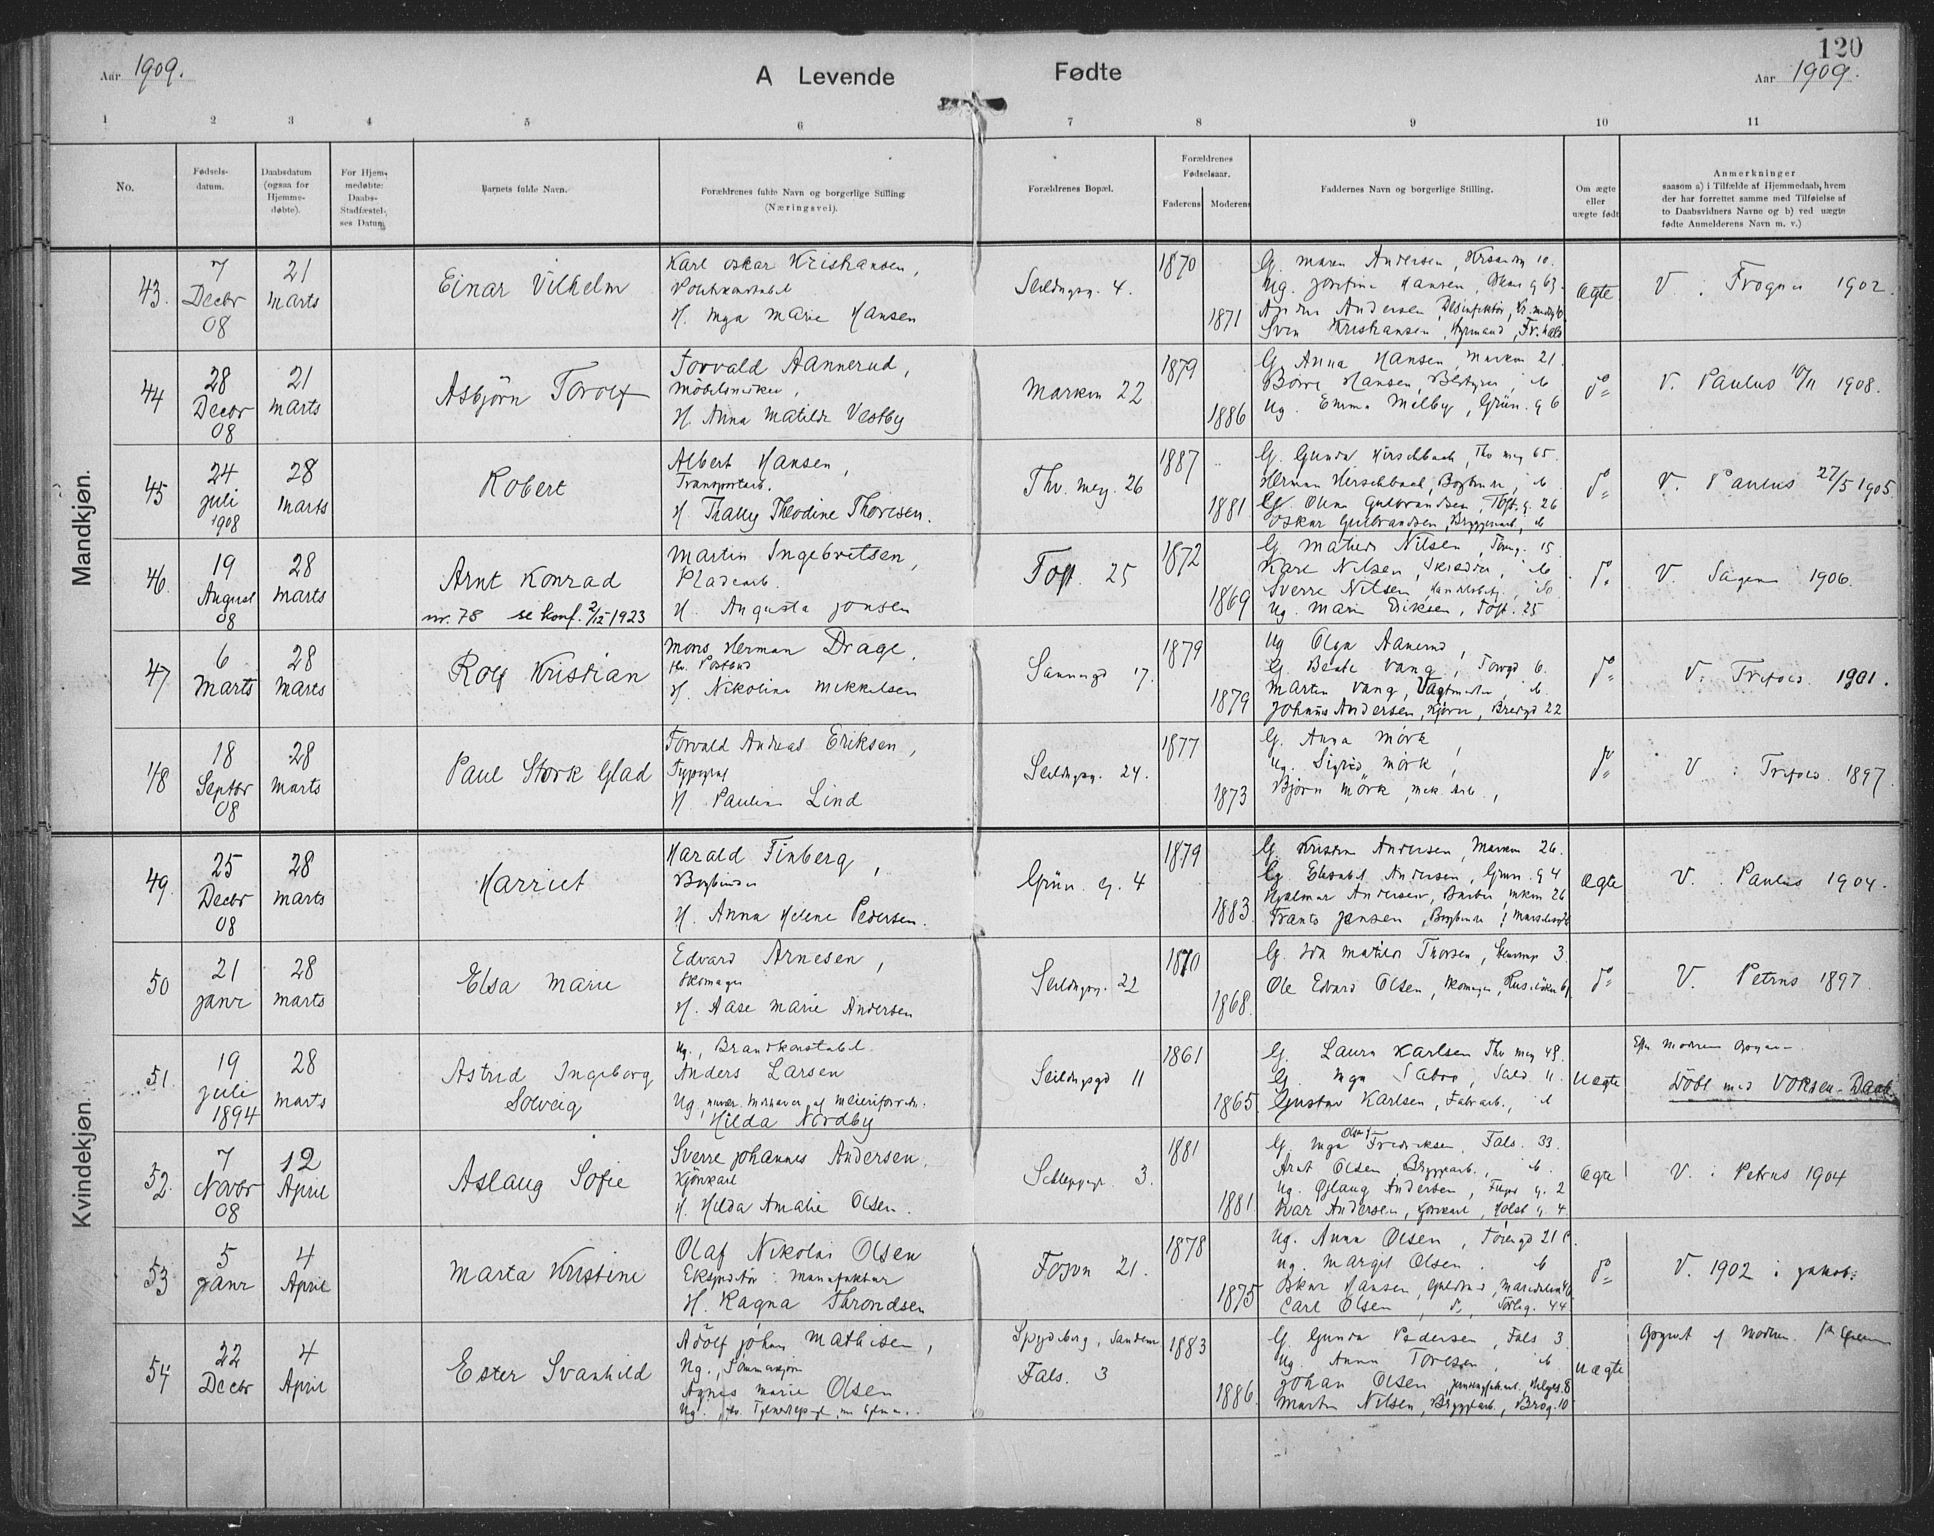 120
Aar 1909.
A Levende Fødte
Aar 1909.
1 2 3 4 5 6 7 8 9 10 11
No.
Fødsels-
datum.
Daabsdatum
(ogsaa for
Hjemme-
døbte).
For Hjem-
medøbte:
Daabs-
Stadfæstel-
ses Datum.
Barnets fulde Navn.
Forældrenes fulde Navn og borgerlige Stilling
(Næringsvei).
Forældrenes Bopæl.
Forældrenes
Fødselsaar.
Faderens Moderens
Faddernes Navn og borgerlige Stilling.
Om ægte
eller
uægte født
Anmerkninger
saasom a) i Tilfælde af Hjemmedaab, hvem
der har forrettet samme med Tilføielse af
to Daabsvidners Navne og b) ved uægte
fødte Anmelderens Navn m. v.)
Mandkjøn.
43.
7
Decbr
08
21
marts
Einar Vilhelm
Karl Oskar Kristiansen,
H. Inga Marie Hansen
4.
1870
1871
G. Maren Andersen, 10.
Ug. Josefine Hansen, 63.
Andersen, Desinfektør,
Sven Kristiansen,
ægte
V. 1902.
44
28
Decbr
08
21
marts
Asbjörn Torolf
Torvald Aannerud,
H. Anna Matilde Vestby
Marken 22
1879
1886
G. Anna Hansen, Marken 21
Hansen,
Ug. Emma Melby, Grün. g 6
do
V. Paulus 10/11 1908.
45
24
juli
1908
28
marts
Robert
Albert Hansen,
Transportarb.
H. Thally Theodine Thoresen.
Thv. mey. 26
1887
1881
G. Gunda Hirschbach, Thv mey 65.
Herman Hirschbach, Bogbinder, do
G. Olina Gulbrandsen, Toft. g. 26
Oskar Gulbrandsen, Bryggeriarb., do
do
V. Paulus 27/5 1905.
46.
19
August
08
28
marts
Arnt Konrad
nr. 78 se konf. 2/12 1923
Martin Ingebretsen,
Pladearb.
H. Augusta Jonsen
Toft. 25
1872
1869
G. Mathilde Nilsen, 15.
Karl Nilsen, Skrædder, do
Sverre Nilsen, do
Ug. Marie Eriksen, Toft. 25
do
V. Sagene 1906.
47
6
Marts
28
Marts
Rolf Kristian
Mons Herman Drage,
fhv. Postbud
H. Nikoline Mikkelsen
Sannergd 17.
1879
1879
Ug Olga Aanerud,
G. Beate Vang, Torvgd 6.
Martin Vang, Vagtmester, do
Johannes Andersen, Kjører, Bredgd 22
do
V. Trefold. 1901.
48
18
Septbr
08
28
marts
Paul Stork Glad
Torvald Andreas Eriksen,
Typograf
H. Pauline Lind
24.
1877
1873
G. Anna Mörk,
Ug. Sigrid Mörk,
Björn Mörk, Mek. Arb.,
do
V. i Trefold. 1897.
Kvindekjøn.
49.
25
Decbr
08
28
marts
Harriet
Harald Finberg,
Bogbinder
H. Anna Helene Pedersen.
Grün. g. 4
1879
1883.
G. Kristine Andersen, Marken 26.
G. Elisabet Andersen, Grün. g 4
Hjalmar Andersen, Barber, mkn 26
Frants Jensen, Bogbinder,
ægte
V. i Paulus 1904.
50
21
janr
28
marts
Elsa Marie
Edvard Arnesen,
Skomager
H. Aase Marie Andersen
22
1870
1868.
G. Ida Matilde Thorsen, 3.
Ole Edvard Olsen, Skomager,
do
V. Petrus 1897.
51.
19
juli
1894
28
marts
Astrid Ingeborg
Solveig
Ug., Brandkonstabel.
Anders Larsen
Ug, Indehaver af Meieriforretn.
Hilda Nordby
11
1861
1865.
G. Laura Karlsen Thv mey 48.
G. Inga Sæbø, 11.
Gustav Karlsen, Fabrarb., do
uægte
Efter Moderens Opgave
Döbt med Voksen-Daab.
52.
7
Novbr
08
12
April
Aslaug Sofie
Sverre Johannes Andersen.
Kjörekarl
H. Hilda Amalie Olsen.
Schleppegr. 3.
1881
1881
G. Inga Olava Fredriksen, Fals. 33.
Arnt Olsen, Bryggearb., do
Ug. Andersen, g. 2
Ivar Andersen, Kjørekarl, Holst g. 4.
ægte
V. i Petrus 1904
53
5
janr
4
April
Marta Kristine
Olaf Nikolai Olsen
Ekspeditör i Manufaktur
H. Ragna Throndsen
Fossvn 21.
1878
1875
Ug. Anna Olsen, 21 c.
Ug. Margit Olsen. do
Oskar Hansen,
Carl Olsen, do, 44
do
V. 1902 i Jakob.
54
22
Decbr
4
April
Ester Svanhild
Adolf Johan Mathisen,
Ug.,
Agnes Marie Olsen
Ug.
Spydeberg, Sandem
Fals. 3
1883
1886
G. Gunda Pedersen, Fals. 3
Ug. Anna Toresen, do
Johan Olsen, 8
Martin Nilsen, Bryggearb., 10
uægte
Opgivet af Modren.